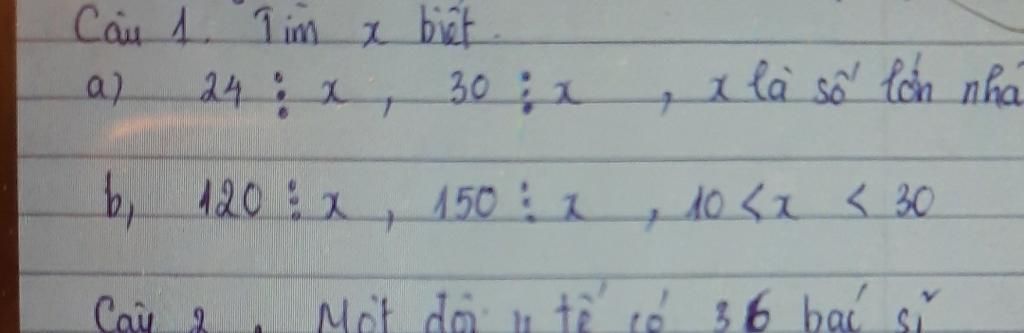 Câu 1. Tìm x biết.
a) 24 ⋮ x, 30 ⋮ x, x là số lớn
b, 120 ⋮ x, 150 ⋮ x, 10 < x < 30
Câu 2. Một đội y tế có 36 bác sĩ